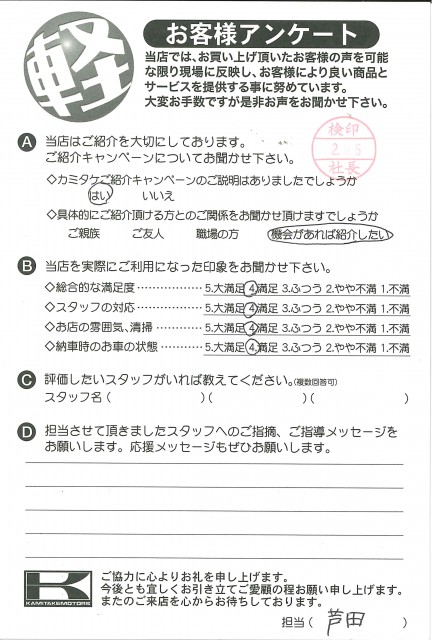 軽
お客様アンケート
当店では、お買い上げ頂いたお客様の声を可能
な限り現場に反映し、お客様により良い商品と
サービスを提供する事に努めています。
大変お手数ですが是非お声をお聞かせ下さい。
検印
2 6
社長
A 当店はご紹介を大切にしております。
ご紹介キャンペーンについてお聞かせ下さい。
◇カミタケご紹介キャンペーンのご説明はありましたでしょうか
はい いいえ
◇具体的にご紹介頂ける方とのご関係をお聞かせ頂けますでしょうか
ご親族 ご友人 職場の方 機会があれば紹介したい
B 当店を実際にご利用になった印象をお聞かせ下さい。
◇総合的な満足度………………5.大満足 4.満足 3.ふつう 2.やや不満 1.不満
◇スタッフの対応………………5.大満足 4.満足 3.ふつう 2.やや不満 1.不満
◇お店の雰囲気、清掃…………5.大満足 4.満足 3.ふつう 2.やや不満 1.不満
◇納車時のお車の状態…………5.大満足 4.満足 3.ふつう 2.やや不満 1.不満
C 評価したいスタッフがいれば教えてください。(複数回答可)
スタッフ名( )( )( )
D 担当させて頂きましたスタッフへのご指摘、ご指導メッセージを
お願いします。応援メッセージもぜひお願いします。
KAMITAKEMOTORS
ご協力に心よりお礼を申し上げます。
今後とも宜しくお引き立てご愛顧の程お願い申し上げます。
またのご来店を心からお待ちしております。
担当( 芦田 )